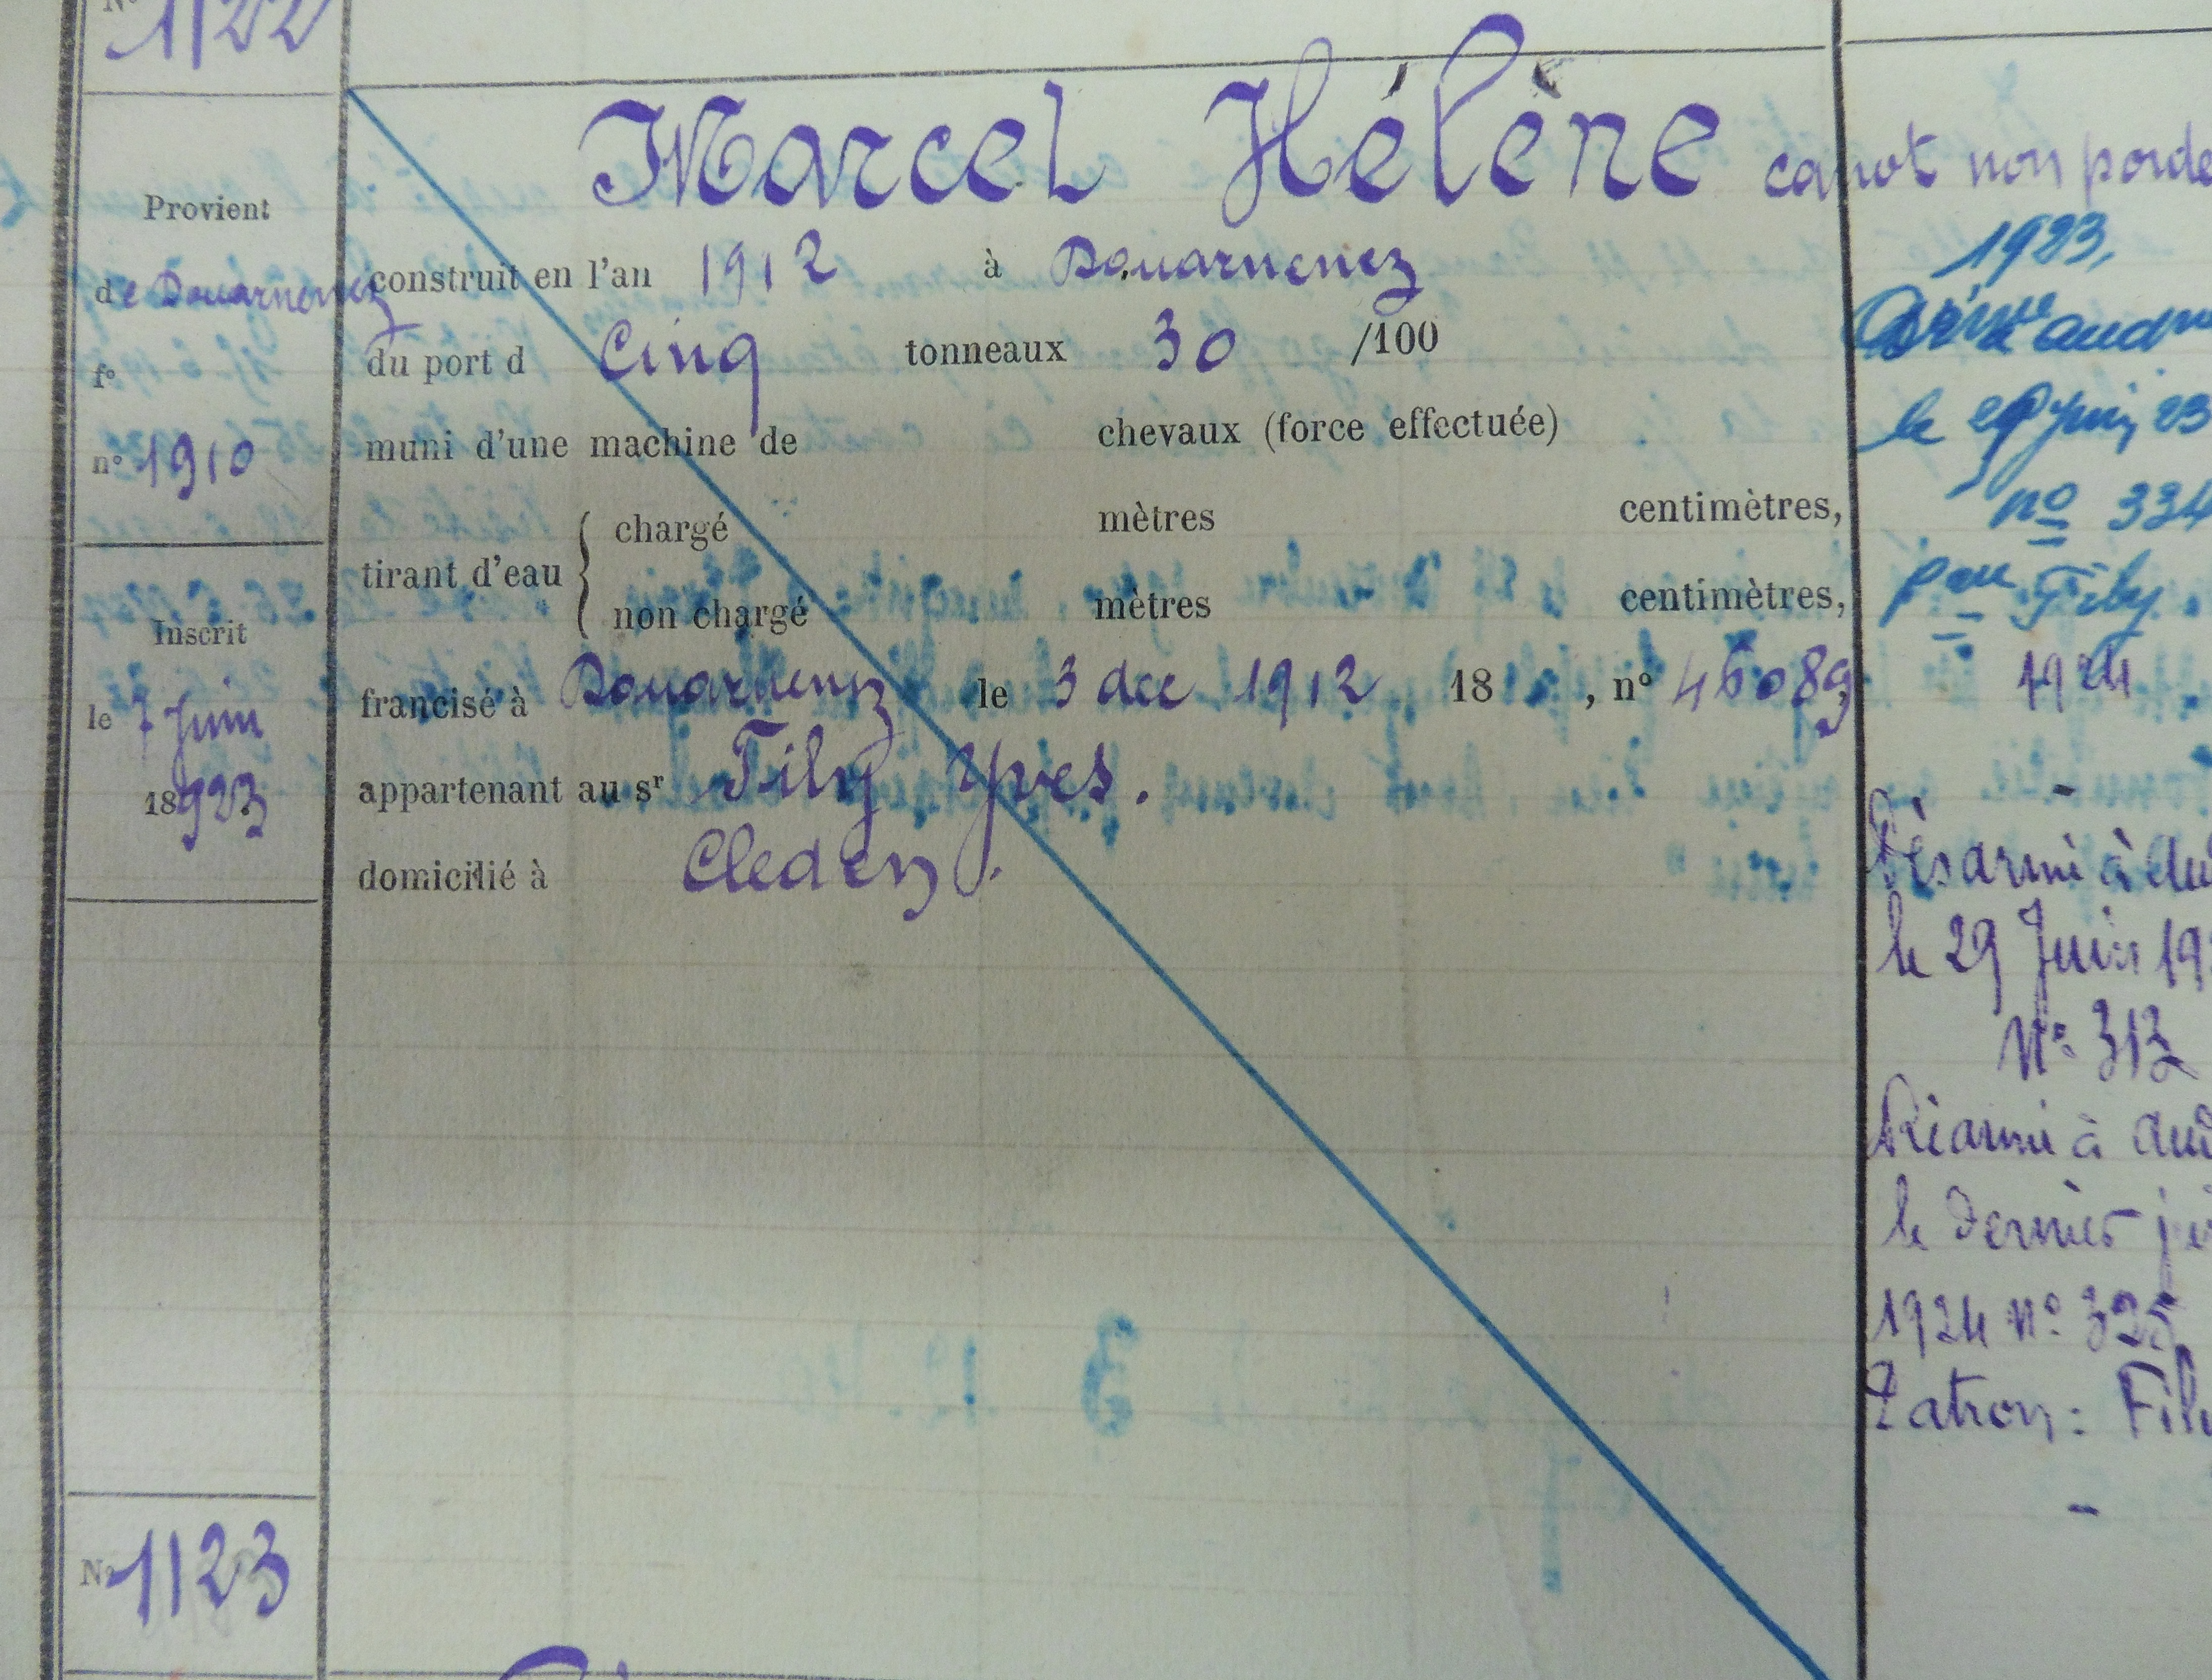 N° 1122
Marcel Hélène canot non ponde
Provient
de Douarnenez
f°
n° 1910
Inscrit
le 7 Juin
18923
construit en l'an 1912 à Douarnenez
du port d Cinq tonneaux 30 /100
muni d'une machine de chevaux (force effectuée)
tirant d'eau { chargé mètres centimètres,
non chargé mètres centimètres,
francisé à Douarnenez le 3 dec 1912 18 , n° 46089
appartenant au sr Fily Yves.
domicilié à Cleden
1923,
Armé à aud
le 29 Juin 23
no 334
Fily.
1924
-
Désarmé à Aud
le 29 Juin 19
N° 313
Réarmé à Aud
le dernier jui
1924 N° 325
Patron : Fily
-
N° 1123